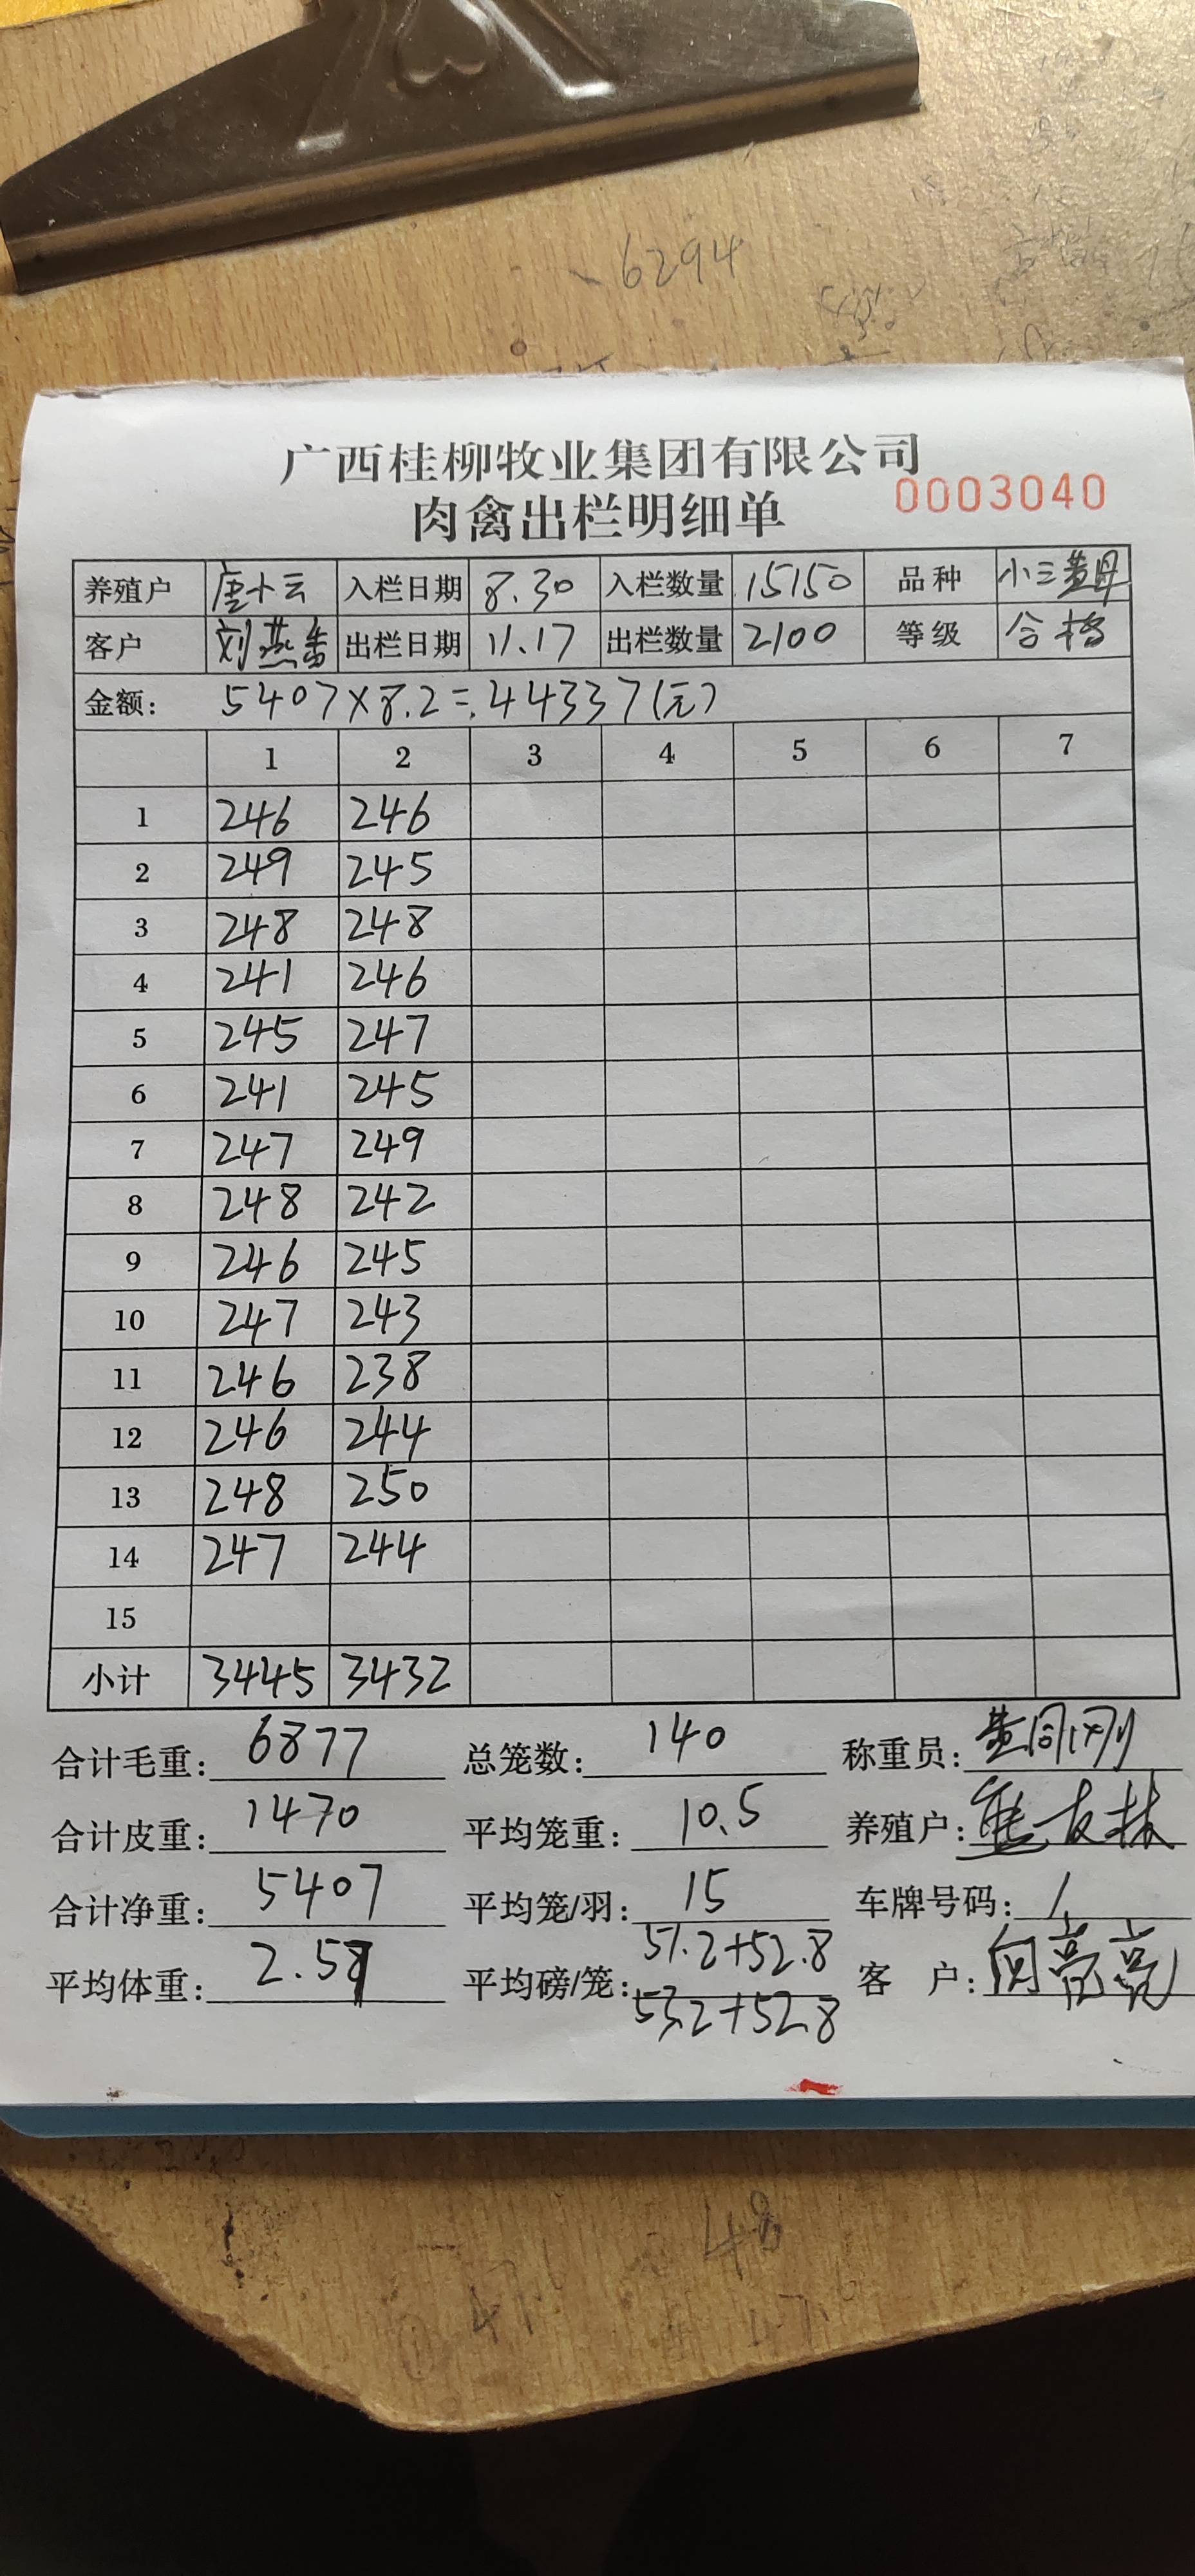 6294
广西桂柳牧业集团有限公司
肉禽出栏明细单 0003040
养殖户 唐小云 入栏日期 8.30 入栏数量 15150 品种 小三黄母
客户 刘燕 出栏日期 11.17 出栏数量 2100 等级 合格
金额: 5407×8.2=44337(元)
1 2 3 4 5 6 7
1 246 246
2 249 245
3 248 248
4 241 246
5 245 247
6 241 245
7 247 249
8 248 242
9 246 245
10 247 243
11 246 238
12 246 244
13 248 250
14 247 244
15
小计 3445 3432
合计毛重: 6877 总笼数: 140 称重员:
合计皮重: 1470 平均笼重: 10.5 养殖户: 熊友林
合计净重: 5407 平均笼/羽: 15 车牌号码: /
51.2+52.8
平均体重: 2.57 平均磅/笼: 客 户: 向亮亮
53.2+52.8
48